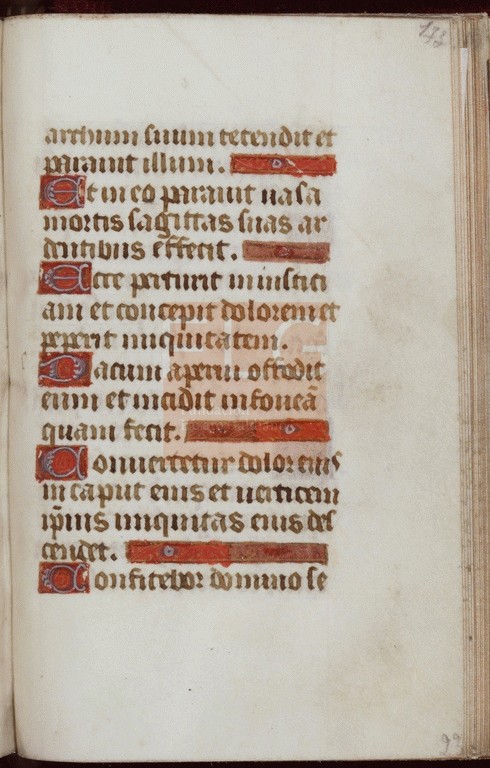 143
archum suum tetendit et
parauit illum.
Et in eo parauit uasa
mortis sagittas suas ar
dentibus effecit.
Ecce perturit iniustici
am et concepit dolorem et
peperit iniquitatem.
Lacum aperui offodit
eum et incidit in foueā
quam fecit.
Conuertetur dolor eius
in caput eius et uerticem
ip̄ius iniquitas eius des
cendet.
Confitebor domino se